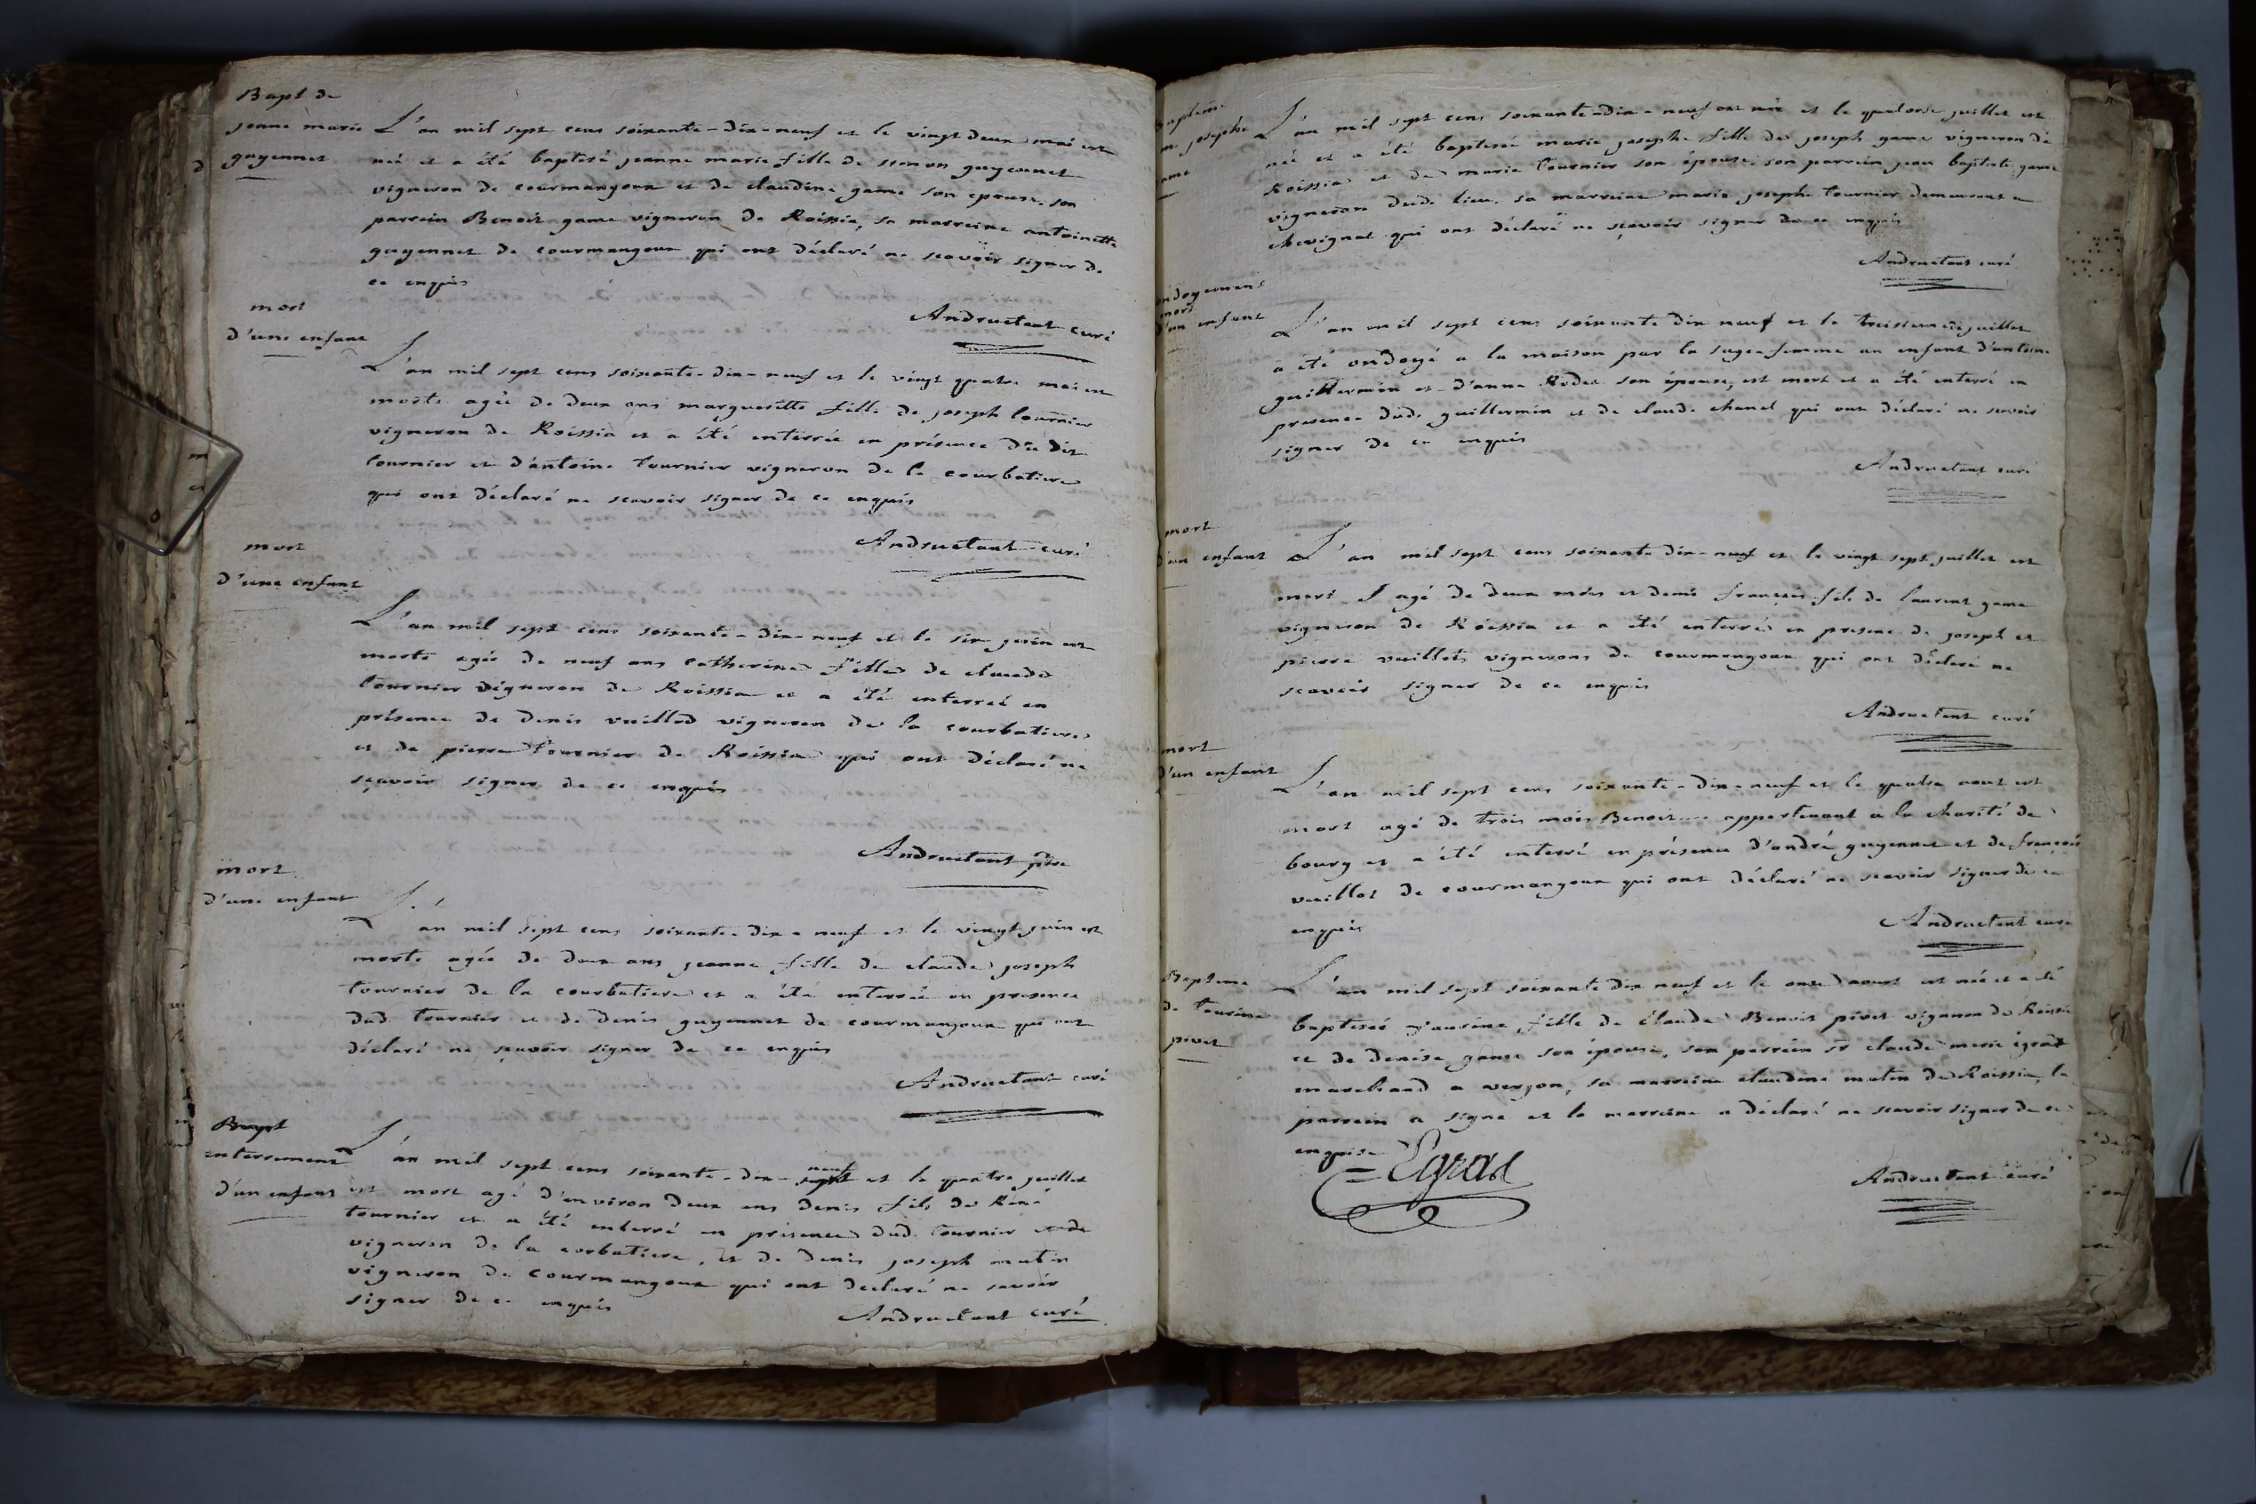 Bapt de
jeanne marie
guyennet
L'an mil sept cens soixante-dix-neuf et le vingt deux mai est
née et a été baptisé jeanne marie fille de simon guyennet
vigneron de courmangoux et de claudine game son epouse, son
parrein Benoit game vigneron de Roissia, sa marreine antoinette
guyennet de courmangoux qui ont déclaré ne scavoir signer de
ce enquis
Andructant curé
mort
d'une enfant
L'an mil sept cens soixante-dix-neuf et le vingt quatre mai est
morte agée de deux ans margueritte fille de joseph tournier
vigneron de Roissia et a été enterrée en présence du dit
tournier et d'antoine tournier vigneron de la courbatiere
qui ont déclaré ne scavoir signer de ce enquis
Andructant curé
mort
d'une enfant
L'an mil sept cens soixante-dix-neuf et le six juin est
morte agée de neuf ans catherine fille de claude
tournier vigneron de Roissia et a été enterreé en
présence de denis vuillod vigneron de la courbatiere
et de pierre tournier de Roissia qui ont déclaré ne
sçavoir signer de ce enquis
Andructant ptre
mort
d'une enfant
L'an mil sept cens soixante-dix-neuf et le vingt juin est
morte agée de deux ans jeanne fille de claude joseph
tournier de la courbatiere et a été enterrée en presence
dud. tournier et de denis guyennet de courmangoux qui ont
déclaré ne sçavoir signer de ce enquis
Andructant curé
Bapt
enterrement
d'un enfant
L'an mil sept cens soixante-dix-sept neuf et le quatre juillet
est mort agé d'environ deux ans denis fils de René
tournier et a été enterré en présence dud. tournier
vigneron de la corbatiere, et de denis joseph mutin
vigneron de courmangoux qui ont declaré ne savoir
signer de ce enquis
Andructant curé
josephe
L'an mil sept cens soixante-dix-neuf et le quatorse juillet est
née et a été baptisée marie josephe fille de joseph game vigneron de
Roissia et de marie tournier son épouse, son parrein jean baptiste game
vigneron dud. lieu, sa marreine marie josephe tournier demeurant a
chevignat qui ont déclaré ne sçavoir signer de ce enquis
Andructant curé
mort
d'un enfant
L'an mil sept cens soixante dix neuf et le juillet
a été ondoyé a la maison par la sage-femme un enfant d'antoine
guillermin et d'anne Rodet son épouse, est mort et a été enterré en
presence dud. guillermin et de claude chanel qui ont déclaré ne scavoir
signer de ce enquis
Andructant curé
mort
d'un enfant
L'an mil sept cens soixante dix-neuf et le vingt sept juillet est
mort agé de deux mois et demi françois fils de laurent game
vigneron de Roissia et a été enterré en presence de joseph et
pierre vuillots vignerons de courmangoux qui ont déclaré ne
scavoir signer de ce enquis
Andructant curé
mort
d'un enfant
L'an mil sept cens soixante-dix-neuf et le quatre aout est
mort agé de trois mois Benoit appartenant a la charité de
bourg et a été enterré en présence d'andré guyennet et de françois
vuillot de courmangoux qui ont déclaré ne scavoir signer de ce
enquis
Andructant curé
Bapteme
de
pivet
L'an mil sept soixante dix neuf et le onze aoust est née et a été
baptiseé fille de Claude Benoit pivet vigneron de Roissia
et de denise game son épouse, son parrein sr claude marie
marchand a verjon, sa marreine claudine mutin de Roissia, le
parrein a signé et la marreine a déclaré ne scavoir signer de ce
enquise
Andructant curé